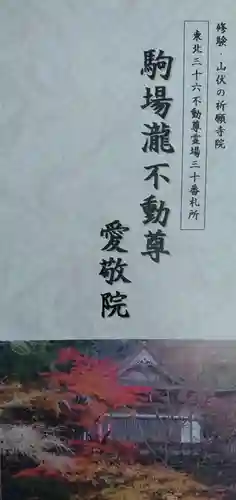 修験・山伏の祈願寺院
東北三十六不動尊霊場三十番札所
駒場瀧不動尊
愛敬院